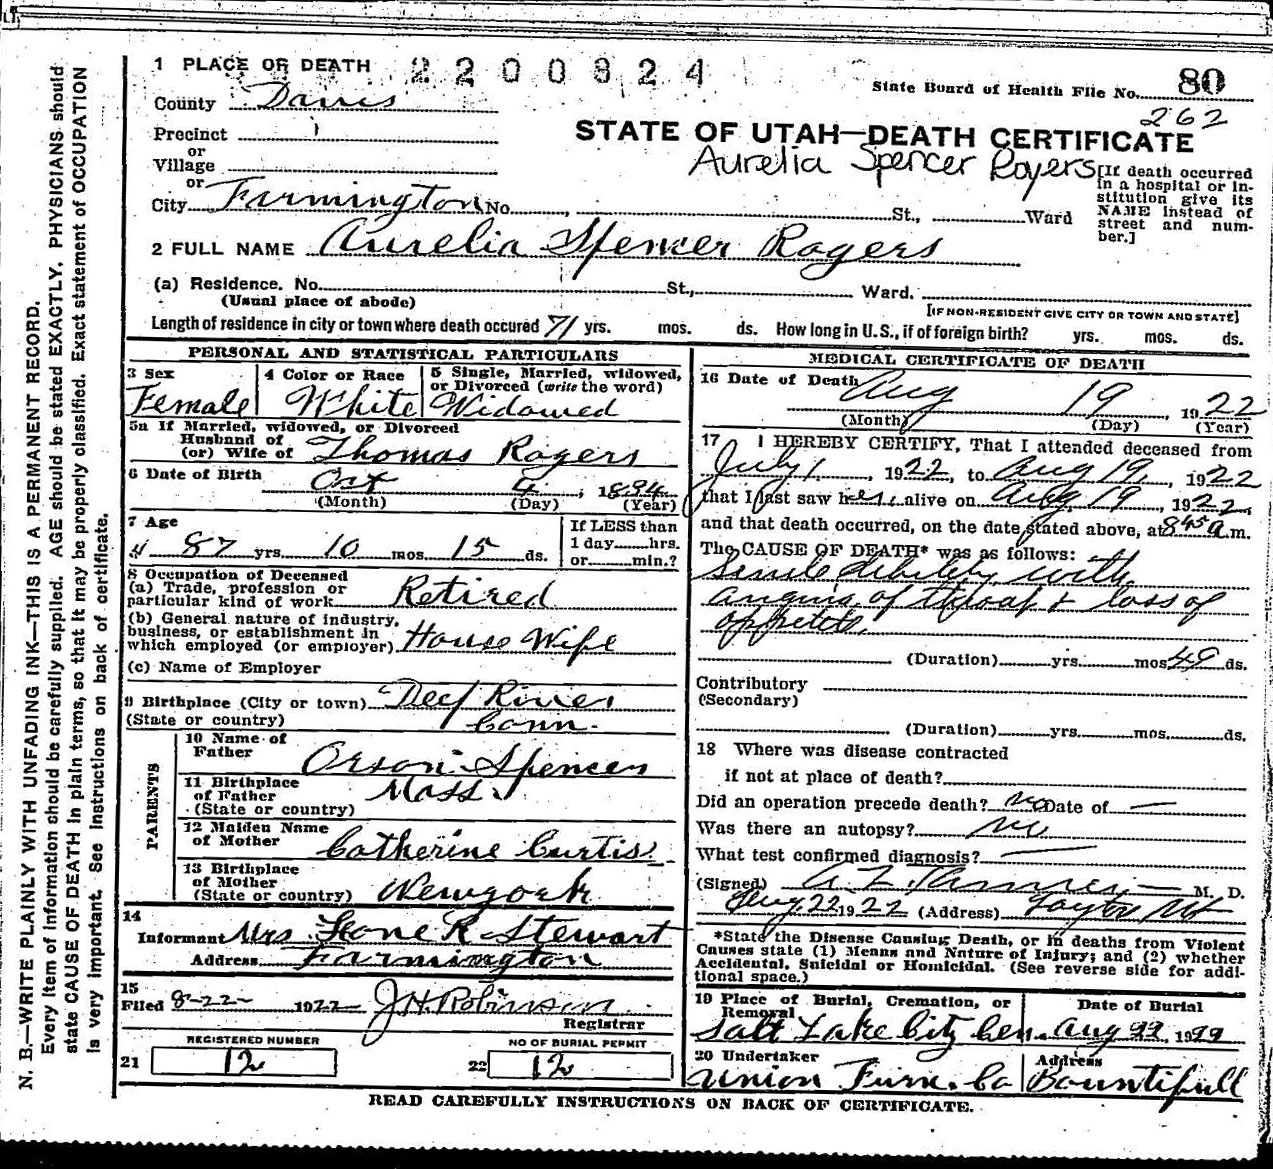 1 PLACE OF DEATH 2200824
State Board of Health File No. 80
County Davis
262
Precinct
STATE OF UTAH—DEATH CERTIFICATE
or
Village
Aurelia Spencer Rogers
[If death occurred in a hospital or institution give its NAME instead of street and number.]
or
City Farmington No. , St., Ward
2 FULL NAME Aurelia Spencer Rogers
(a) Residence. No. St., Ward.
(Usual place of abode)
[IF NON-RESIDENT GIVE CITY OR TOWN AND STATE]
Length of residence in city or town where death occured 71 yrs. mos. ds. How long in U.S., if of foreign birth? yrs. mos. ds.
PERSONAL AND STATISTICAL PARTICULARS
3 Sex
Female
4 Color or Race
White
5 Single, Married, widowed, or Divorced (write the word)
Widowed
5a If Married, widowed, or Divorced
Husband of
(or) Wife of Thomas Rogers
6 Date of Birth Oct 4, 1834
(Month) (Day) (Year)
7 Age
87 yrs. 10 mos. 15 ds.
If LESS than
1 day hrs.
or min.?
8 Occupation of Deceased
(a) Trade, profession or
particular kind of work Retired
(b) General nature of industry,
business, or establishment in
which employed (or employer) House Wife
(c) Name of Employer
9 Birthplace (City or town) Deep River
(State or country) Conn.
PARENTS
10 Name of
Father Orson Spencer
11 Birthplace
of Father Mass.
(State or country)
12 Maiden Name
of Mother Catherine Curtis
13 Birthplace
of Mother
(State or country) Newyork
14
Informant Mrs Leone R. Stewart
Address Farmington
15
Filed 8-22- 1922 J.H. Robinson
Registrar
REGISTERED NUMBER
21 12
NO OF BURIAL PERMIT
22 12
MEDICAL CERTIFICATE OF DEATH
16 Date of Death Aug 19, 1922
(Month) (Day) (Year)
17 I HEREBY CERTIFY, That I attended deceased from
July 1, 1922, to Aug 19, 1922
that I last saw her alive on Aug 19, 1922,
and that death occurred, on the date stated above, at 8 45 a.m.
The CAUSE OF DEATH* was as follows:
Senile debility with
angina of throat & loss of
appetite.
(Duration) yrs. mos. 49 ds.
Contributory
(Secondary)
(Duration) yrs. mos. ds.
18 Where was disease contracted
if not at place of death?
Did an operation precede death? no Date of —
Was there an autopsy? no
What test confirmed diagnosis? —
(Signed) M. D.
Aug 22 1922 (Address) Layton Ut
*State the Disease Causing Death, or in deaths from Violent
Causes state (1) Means and Nature of Injury; and (2) whether
Accidental, Suicidal or Homicidal. (See reverse side for addi-
tional space.)
19 Place of Burial, Cremation, or Removal
Salt Lake City Cem.
Date of Burial
Aug 22 1922
20 Undertaker
Union Furn. Co
Address
Bountifull
READ CAREFULLY INSTRUCTIONS ON BACK OF CERTIFICATE.
N. B.—WRITE PLAINLY WITH UNFADING INK—THIS IS A PERMANENT RECORD.
Every item of information should be carefully supplied. AGE should be stated EXACTLY. PHYSICIANS should
state CAUSE OF DEATH in plain terms, so that it may be properly classified. Exact statement of OCCUPATION
is very important. See instructions on back of certificate.